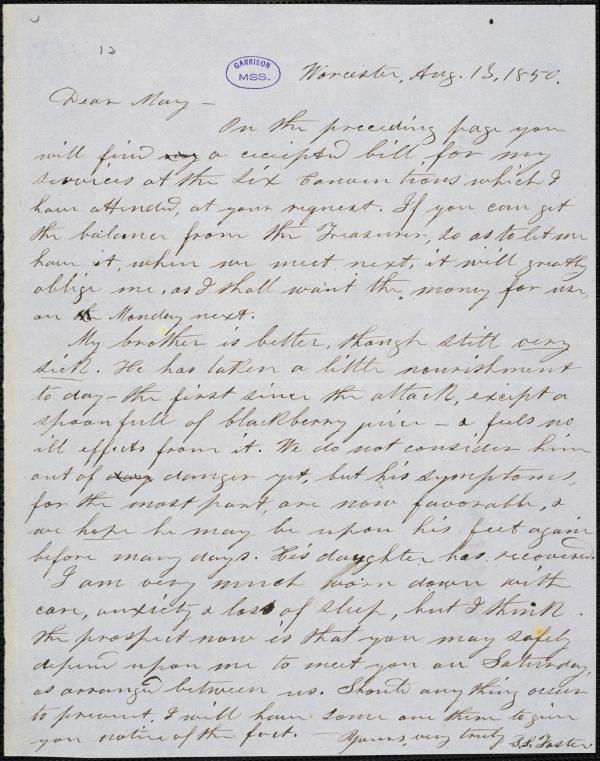 12
GARRISON
MSS.
Worcester, Aug. 13, 1850.
Dear May —
On the preceding page you
will find a receipted bill for my
services at the six Conventions which I
have attended, at your request. If you can get
the balance from the Treasurer, so as to let me
have it, when we meet next, it will greatly
oblige me, as I shall want the money for use,
on Monday next.
My brother is better, though still very
sick. He has taken a little nourishment
to day – the first since the attack, except a
spoonfull of blackberry juice – & feels no
ill effects from it. We do not consider him
out of danger yet, but his symptoms,
for the most part, are now favorable, &
we hope he may be upon his feet again
before many days. His daughter has recovered.
I am very much worn down with
care, anxiety & loss of sleep, but I think
the prospect now is that you may safely
depend upon me to meet you on Saturday,
as arranged between us. Should any thing occur
to prevent, I will have some one there to give
you notice of the fact. — Yours, very truly S.S. Foster.